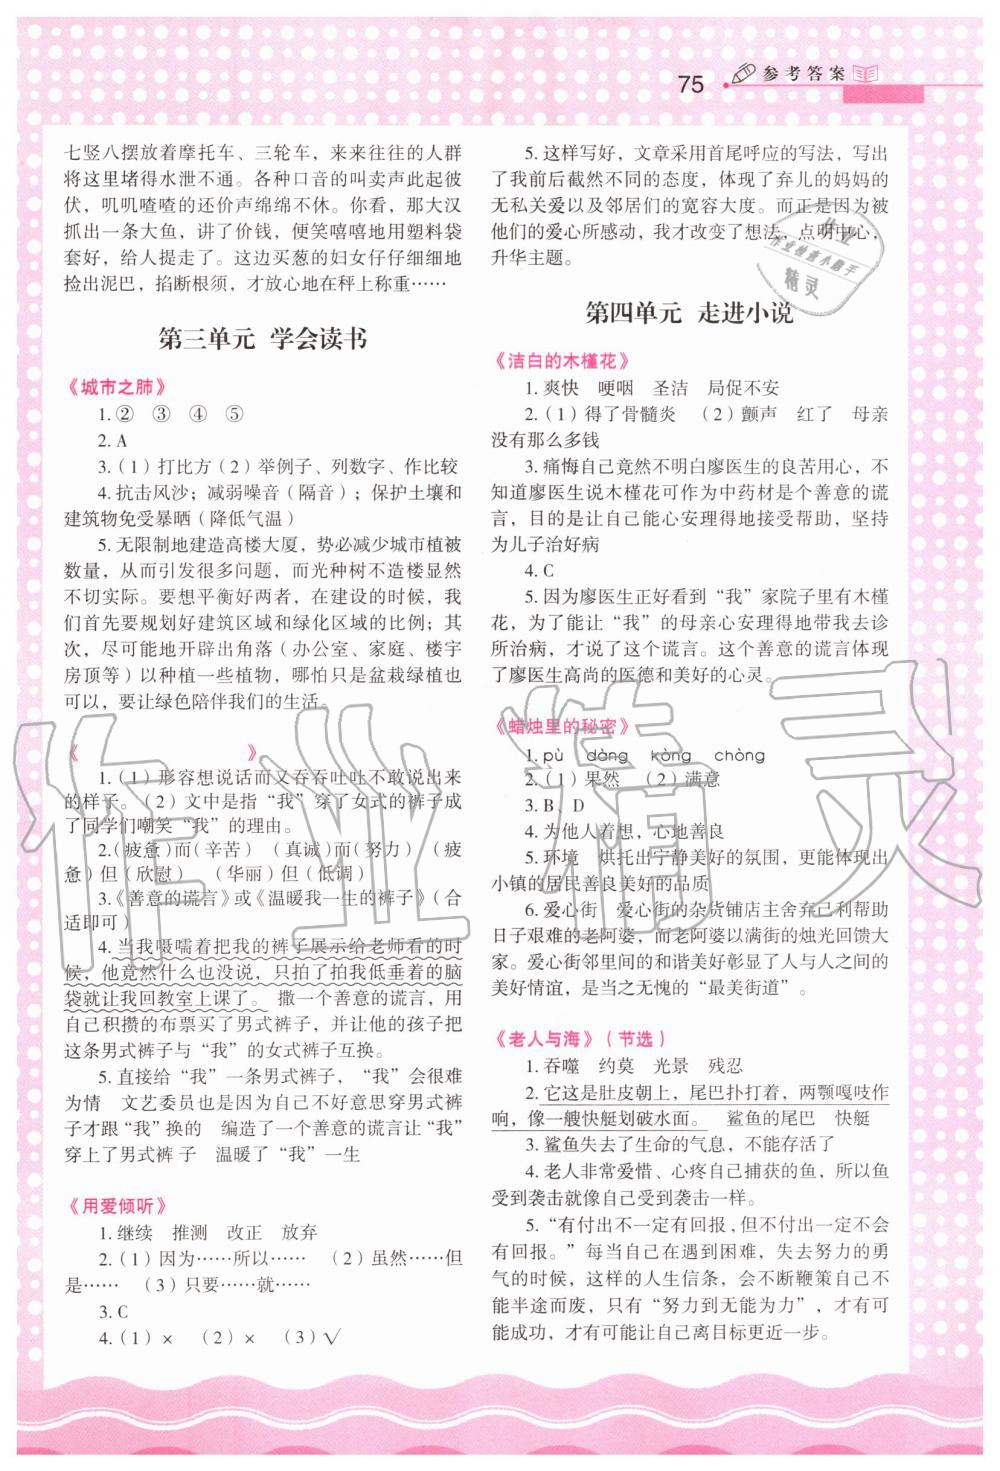 75
参考答案
七竖八摆放着摩托车、三轮车，来来往往的人群
将这里堵得水泄不通。各种口音的叫卖声此起彼
伏，叽叽喳喳的还价声绵绵不休。你看，那大汉
抓出一条大鱼，讲了价钱，便笑嘻嘻地用塑料袋
套好，给人提走了。这边买葱的妇女仔仔细细地
捡出泥巴，掐断根须，才放心地在秤上称重……
第三单元 学会读书
《城市之肺》
1.② ③ ④ ⑤
2. A
3.（1）打比方（2）举例子、列数字、作比较
4. 抗击风沙；减弱噪音（隔音）；保护土壤和
建筑物免受暴晒（降低气温）
5. 无限制地建造高楼大厦，势必减少城市植被
数量，从而引发很多问题，而光种树不造楼显然
不切实际。要想平衡好两者，在建设的时候，我
们首先要规划好建筑区域和绿化区域的比例；其
次，尽可能地开辟出角落（办公室、家庭、楼宇
房顶等）以种植一些植物，哪怕只是盆栽绿植也
可以，要让绿色陪伴我们的生活。
《 》
1.（1）形容想说话而又吞吞吐吐不敢说出来
的样子。（2）文中是指“我”穿了女式的裤子成
了同学们嘲笑“我”的理由。
2.（疲惫）而（辛苦） （真诚）而（努力） （疲
惫）但（欣慰） （华丽）但（低调）
3.《善意的谎言》或《温暖我一生的裤子》（合
适即可）
4. 当我嗫嚅着把我的裤子展示给老师看的时
候，他竟然什么也没说，只拍了拍我低垂着的脑
袋就让我回教室上课了。 撒一个善意的谎言，用
自己积攒的布票买了男式裤子，并让他的孩子把
这条男式裤子与“我”的女式裤子互换。
5. 直接给“我”一条男式裤子，“我”会很难
为情 文艺委员也是因为自己不好意思穿男式裤
子才跟“我”换的 编造了一个善意的谎言让“我”
穿上了男式裤 子 温暖了“我”一生
《用爱倾听》
1. 继续 推测 改正 放弃
2.（1）因为……所以…… （2）虽然……但
是…… （3）只要……就……
3. C
4.（1）× （2）× （3）√
5. 这样写好，文章采用首尾呼应的写法，写出
了我前后截然不同的态度，体现了弃儿的妈妈的
无私关爱以及邻居们的宽容大度。而正是因为被
他们的爱心所感动，我才改变了想法，点明中心，
升华主题。
第四单元 走进小说
《洁白的木槿花》
1. 爽快 哽咽 圣洁 局促不安
2.（1）得了骨髓炎 （2）颤声 红了 母亲
没有那么多钱
3. 痛悔自己竟然不明白廖医生的良苦用心，不
知道廖医生说木槿花可作为中药材是个善意的谎
言，目的是让自己能心安理得地接受帮助，坚持
为儿子治好病
4. C
5. 因为廖医生正好看到“我”家院子里有木槿
花，为了能让“我”的母亲心安理得地带我去诊
所治病，才说了这个谎言。这个善意的谎言体现
了廖医生高尚的医德和美好的心灵。
《蜡烛里的秘密》
1. pù dàng kòng chòng
2.（1）果然 （2）满意
3. B、D
4. 为他人着想，心地善良
5. 环境 烘托出宁静美好的氛围，更能体现出
小镇的居民善良美好的品质
6. 爱心街 爱心街的杂货铺店主舍弃己利帮助
日子艰难的老阿婆，而老阿婆以满街的烛光回馈大
家。爱心街邻里间的和谐美好彰显了人与人之间的
美好情谊，是当之无愧的“最美街道”。
《老人与海》（节选）
1. 吞噬 约莫 光景 残忍
2. 它这是肚皮朝上，尾巴扑打着，两颚嘎吱作
响，像一艘快艇划破水面。 鲨鱼的尾巴 快艇
3. 鲨鱼失去了生命的气息，不能存活了
4. 老人非常爱惜、心疼自己捕获的鱼，所以鱼
受到袭击就像自己受到袭击一样。
5.“有付出不一定有回报，但不付出一定不会
有回报。”每当自己遇到困难，失去努力的勇
气的时候，这样的人生信条，会不断鞭策自己不
能半途而废，只有“努力到无能为力”，才有可
能成功，才有可能让自己离目标更近一步。
作业精灵
作业
作业检查小助手
精灵